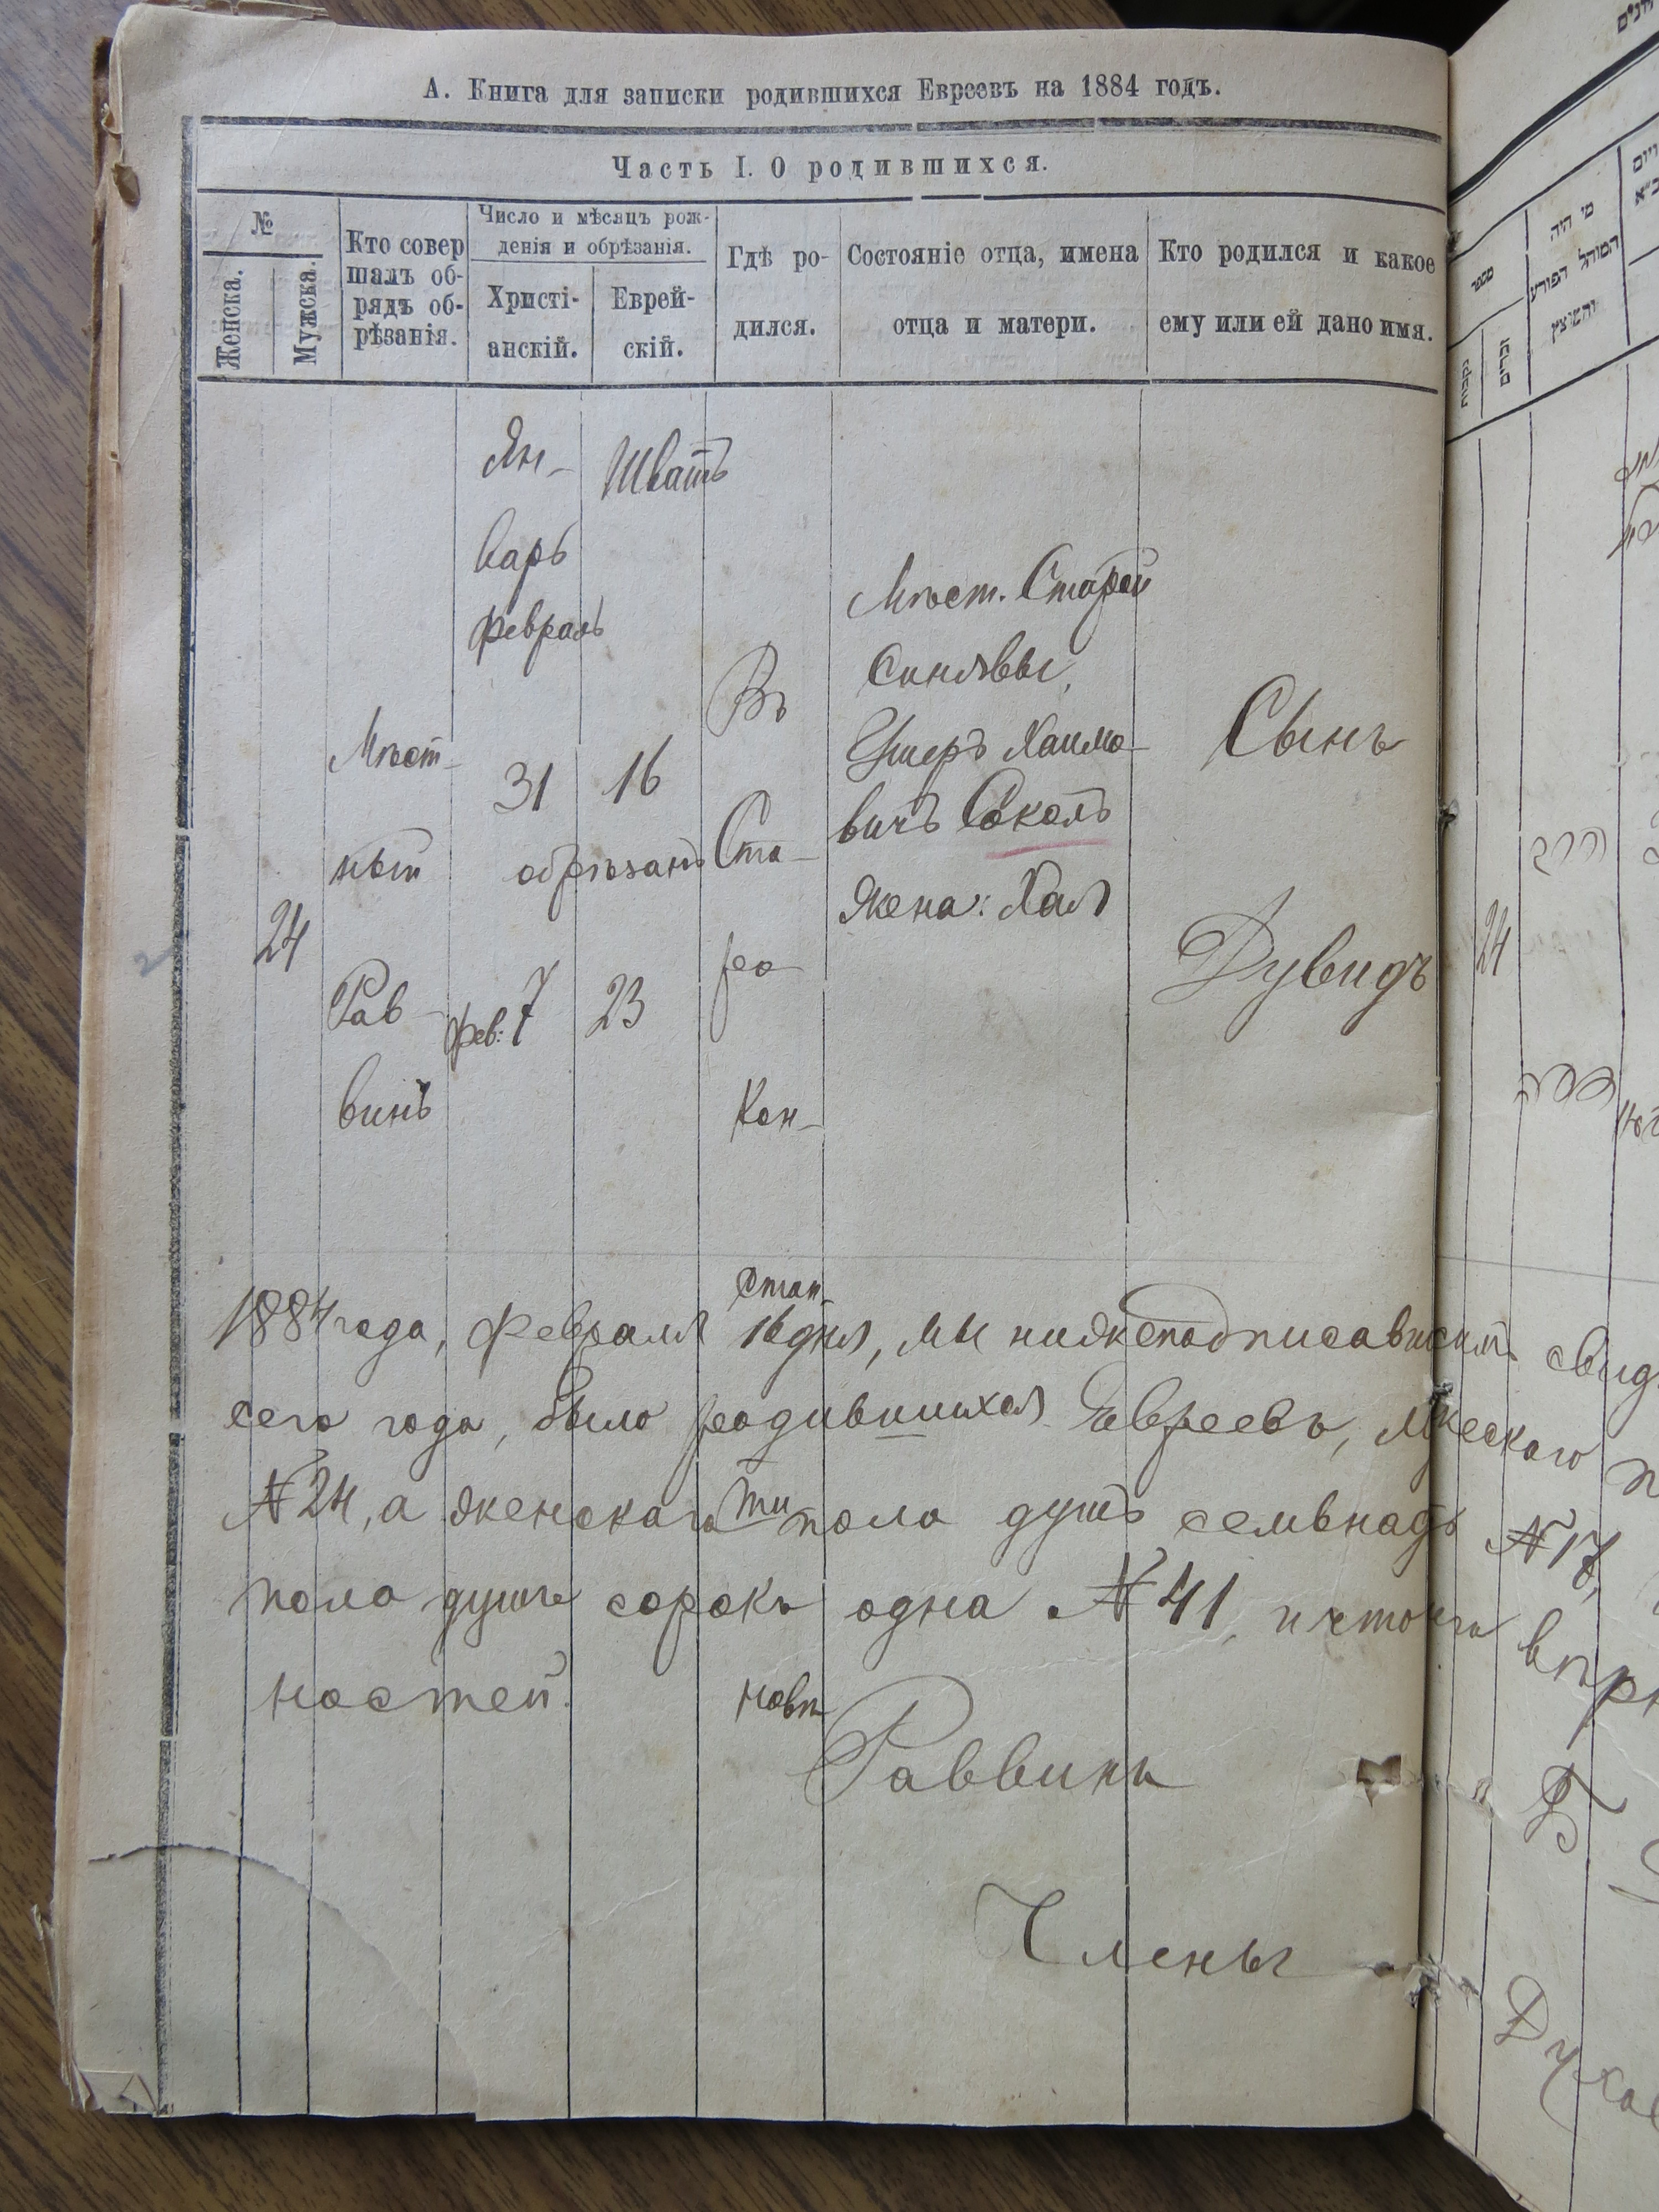 А. Книга для записки родившихся Евреевъ на 1884 годъ.
Часть I. О родившихся.
№
Женска.
Мужска.
Кто совер
шалъ об-
рядъ об-
рѣзанія.
Число и мѣсяцъ рож-
денія и обрѣзанія.
Христі-
анскій.
Еврей-
скій.
Гдѣ ро-
дился.
Состояніе отца, имена
отца и матери.
Кто родился и какое
ему или ей дано имя.
24
Мѣст-
ный
Рав-
винъ
Ян-
варь
февраль
31
обрѣзанъ
фев: 7
Шватъ
16
23
Въ
Ста-
ро
Кон-
стан-
ти
новѣ
Мѣст. Старой
Синявы,
Ушеръ Хаимо-
вичъ Соколъ
Жена: Хая
Сынъ
Дувидъ
1884 года, февраля 16 дня, мы нижеподписавшиеся
сего года, было родившихся Евреевъ, мужескаго
№ 24, а женскаго пола душъ семьнадц № 17,
пола душъ сорокъ одна № 41,
ностей.
Раввинъ
Члены
מספר
נקבות
זכרים
מי היה
המוהל הפורע
והמוצץ
24